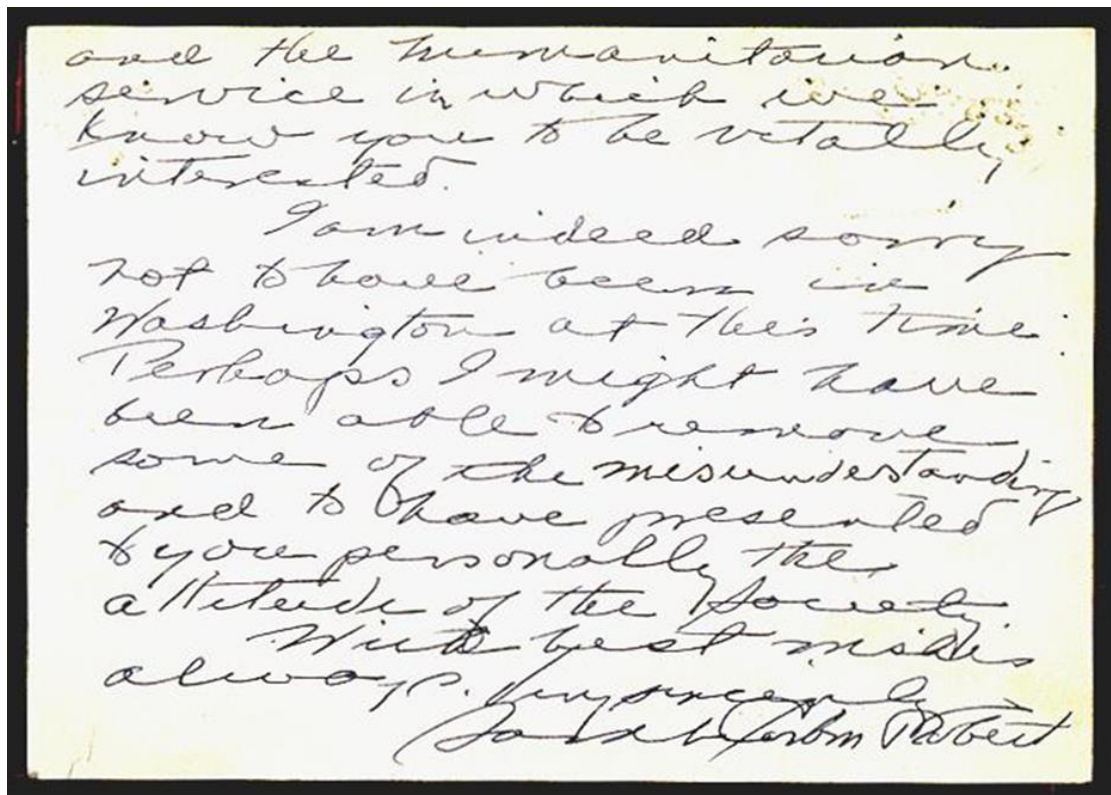 and the humanitarian
service in which we
know you to be vitally
interested.
I am indeed sorry
not to have been in
Washington at this time.
Perhaps I might have
been able to remove
some of the misunderstanding
and to have presented
to you personally the
attitude of the Society.
With best wishes
always. Very sincerely
Sarah Corbin Robert